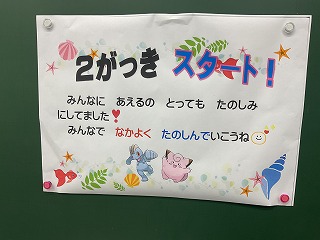 2がっき スタート!
みんなに あえるの とっても たのしみ
にしてました❣
みんなで なかよく たのしんでいこうね